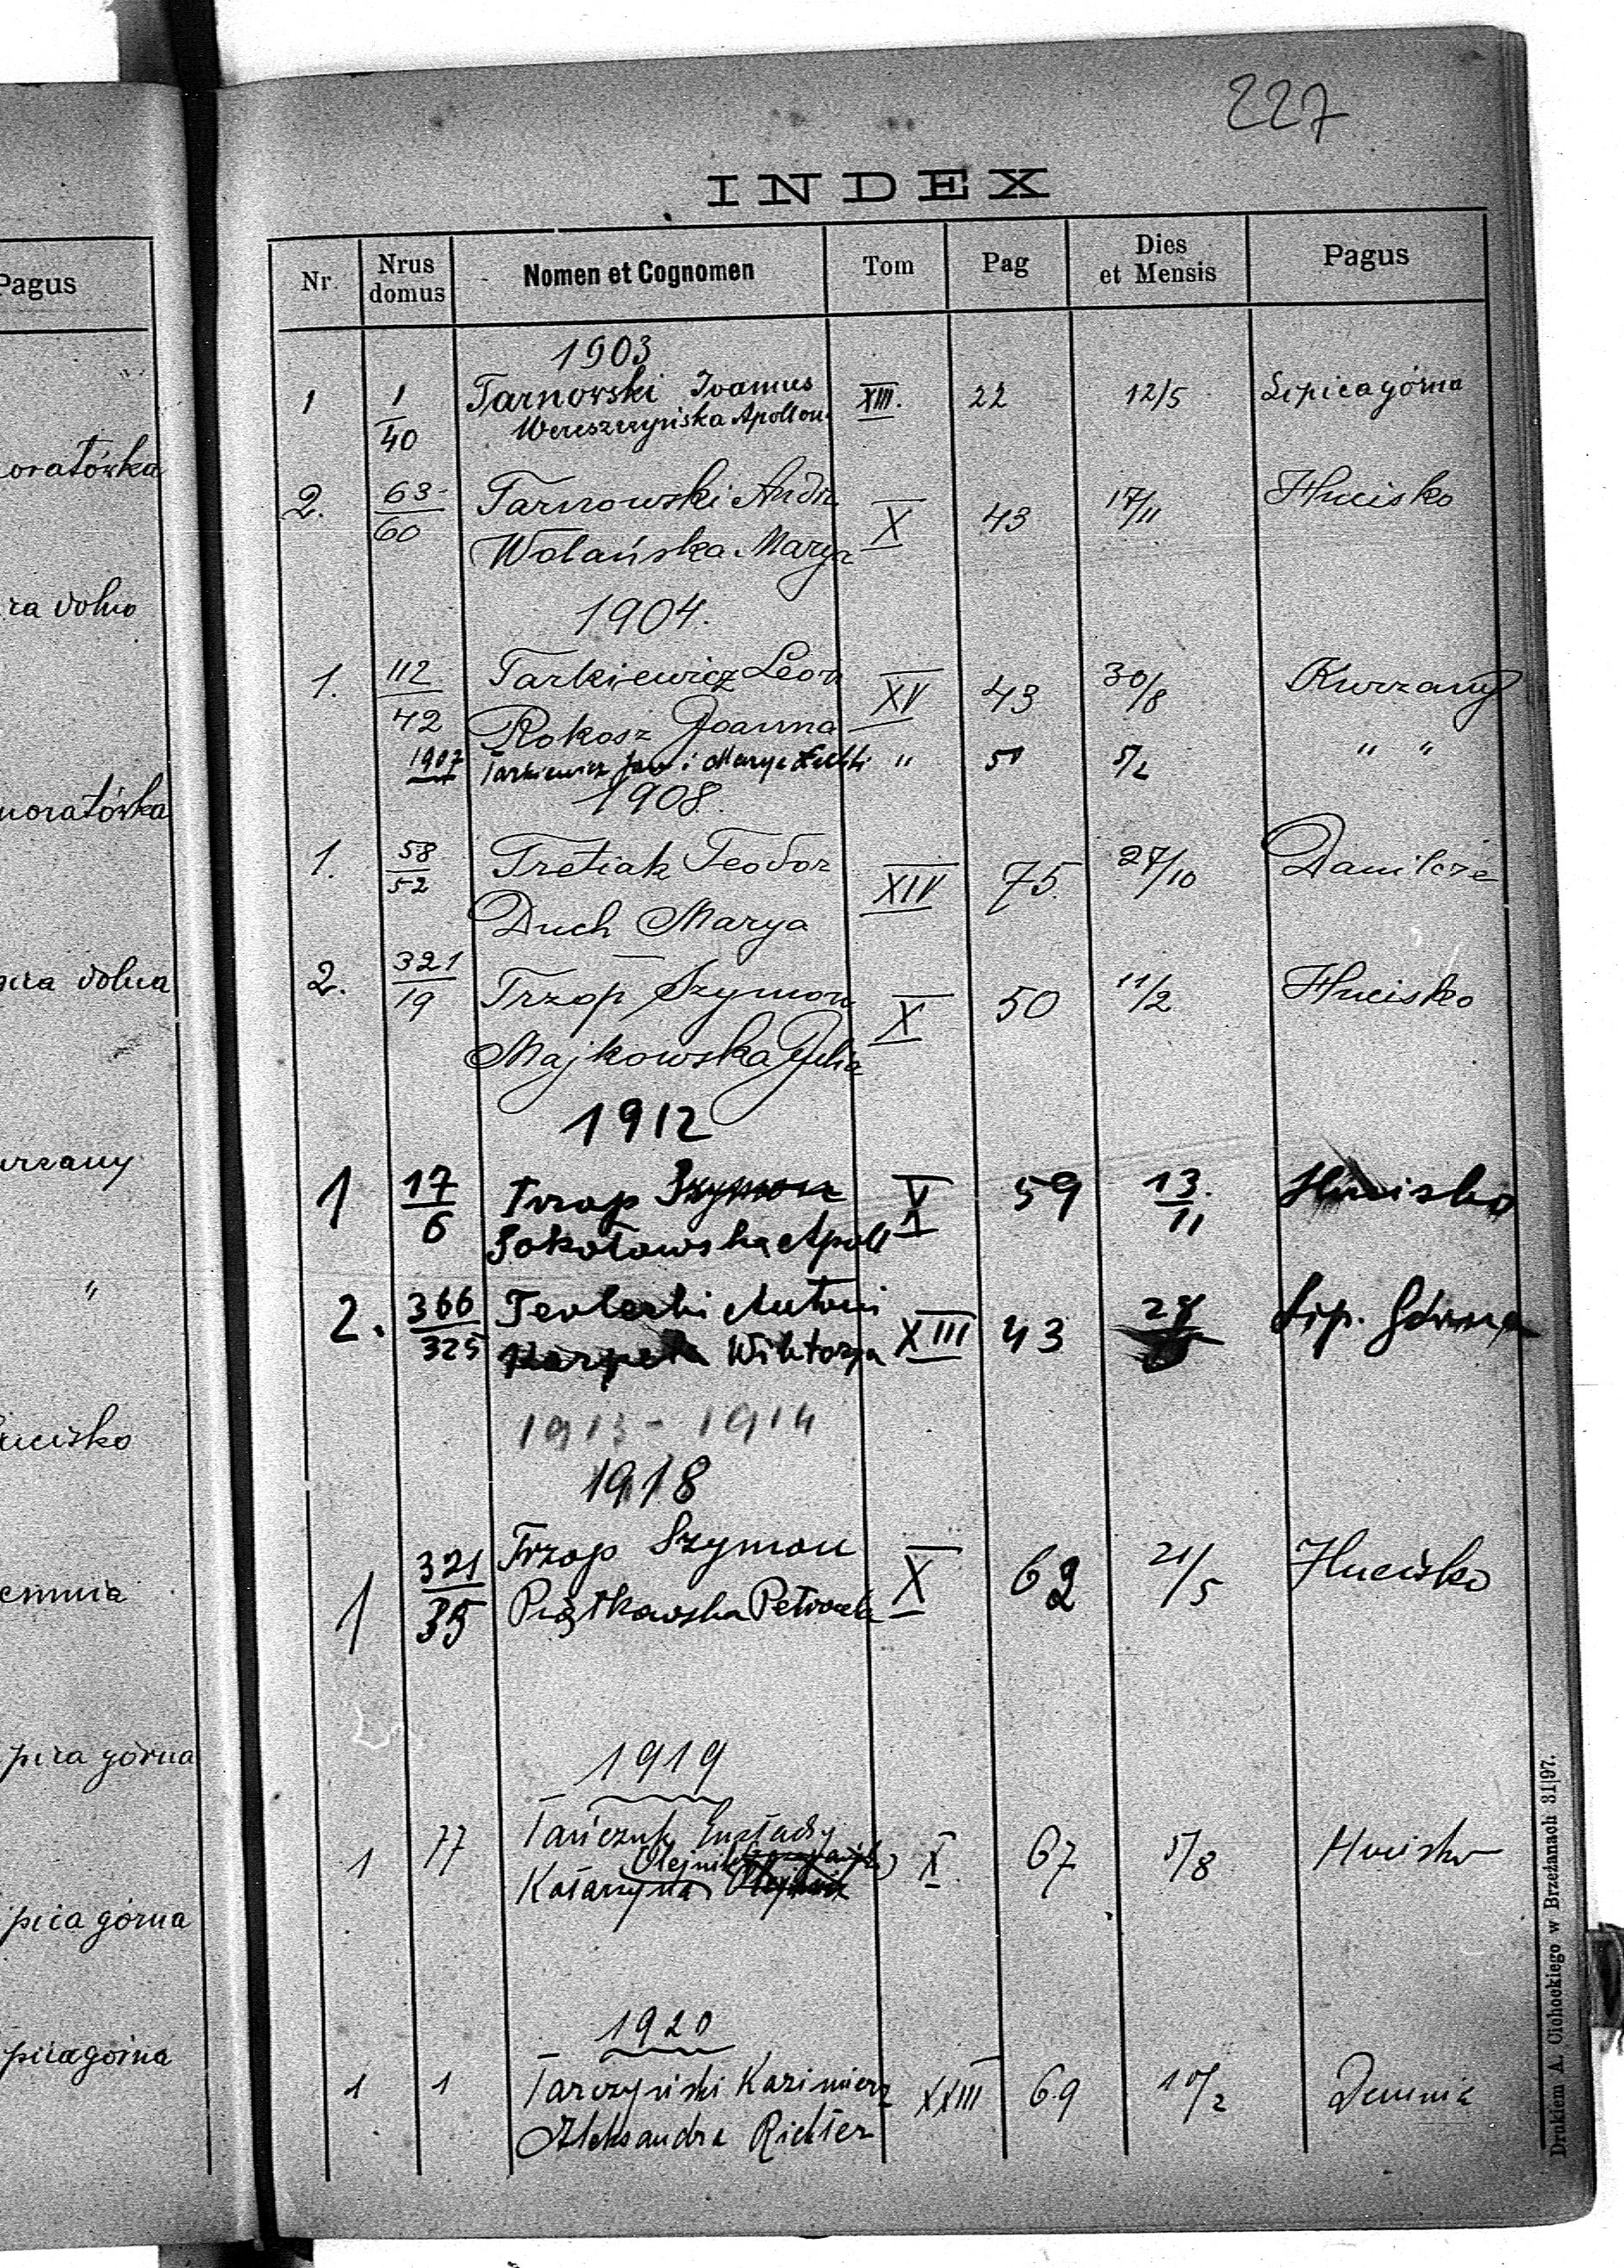 Pagus
oratówka
ra dolno
noratówka
ica dolna
urzany
"
ucisko
emnia
pica górna
pica górna
picagórna
227
INDEX
Nr. Nrus domus Nomen et Cognomen Tom Pag Dies et Mensis Pagus
1903
1 1/40 Tarnowski Joannes XIII. 22 12/5 Lipica górna
Wereszczyńska Apollon
2. 63/60 Tarnowski Andr X 43 17/11 Hucisko
Wolańska Marya
1904.
1. 112/42 Tarkiewicz Leon XV 43 30/8 Kurzany
Rokosz Joanna
1907 Tarkiewicz Jan i Marya " 51 5/2 " "
1908.
1. 58/52 Tretiak Teodor XIV 75. 27/10 Danilcze
Duch Marya
2. 321/19 Trzop Szymon X 50 11/2 Hucisko
Majkowska Julia
1912
1 17/6 Trzop Szymon X 59 13./11 Hucisko
Sokołowska Apoll
2. 366/325 Teolecki Antoni XIII 43 28 Lip. Górna
Karpeta Wiktorya
1913 - 1914
1918
1 321/35 Trzop Szymon X 62 21/5 Hucisko
Piątkowska Petronela
1919
1 77 Tańczuk Eustachy X 67 5/8 Hucisko
Olejnik
Katarzyna Olejnik
1920
1 1 Tarczyński Kazimierz XXIII 69 10/2 Demnia
Aleksandra Richter
Drukiem A. Cichockiego w Brzeżanach 31|97.